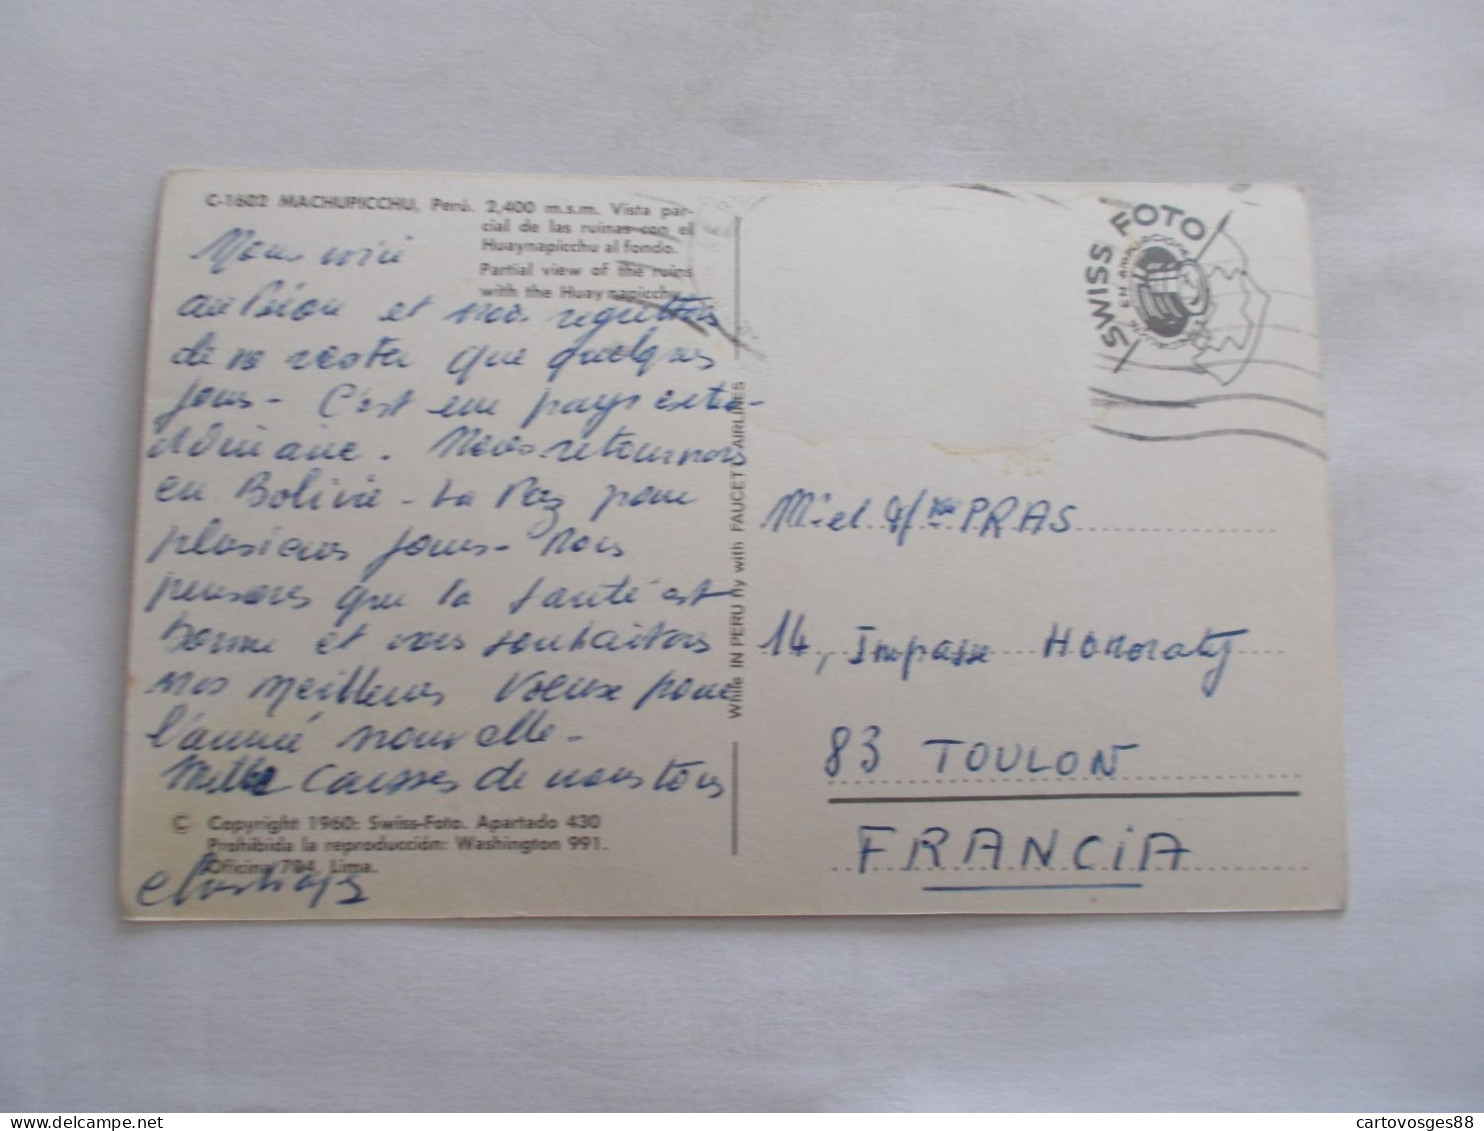 C-1602 MACHUPICCHU, Perú. 2,400 m.s.m. Vista par-
cial de las ruinas con el
Huaynapicchu al fondo.
Partial view of the ruins
with the Huaynapicchu
Nous voici
au Pérou et nous regrettons
de ne rester que quelques
jours - C'est un pays extra-
ordinaire. Nous retournons
en Bolivie - La Paz pour
plusieurs jours - Nous
pensons que la santé est
bonne et vous souhaitons
nos meilleurs voeux pour
l'année nouvelle -
Mille de nous tous
© Copyright 1960: Swiss-Foto. Apartado 430
Prohibida la reproducción: Washington 991.
Oficina 704, Lima.
While IN PERU fly with FAUCETT AIRLINES
SWISS FOTO
PRAS
14, Impasse Honoraty
83 TOULON
FRANCIA
cartovosges88